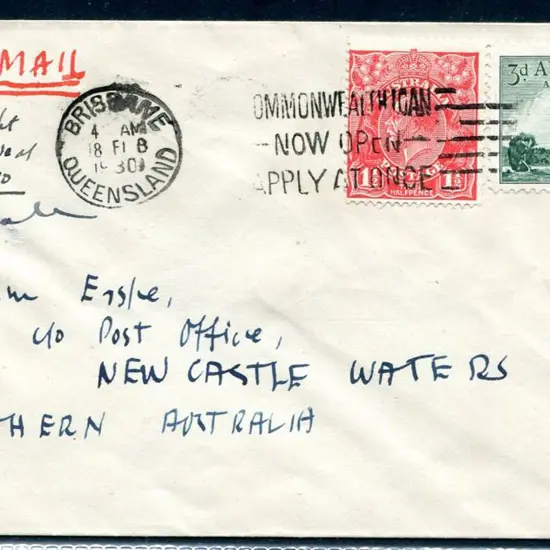 MAIL
BRISBANE
4 AM
18 FE 8
1930
QUEENSLAND
COMMONWEALTH LOAN
NOW OPEN
APPLY AT ONCE
HALFPENCE
3d A
c/o Post Office,
NEWCASTLE WATERS
THERN AUSTRALIA